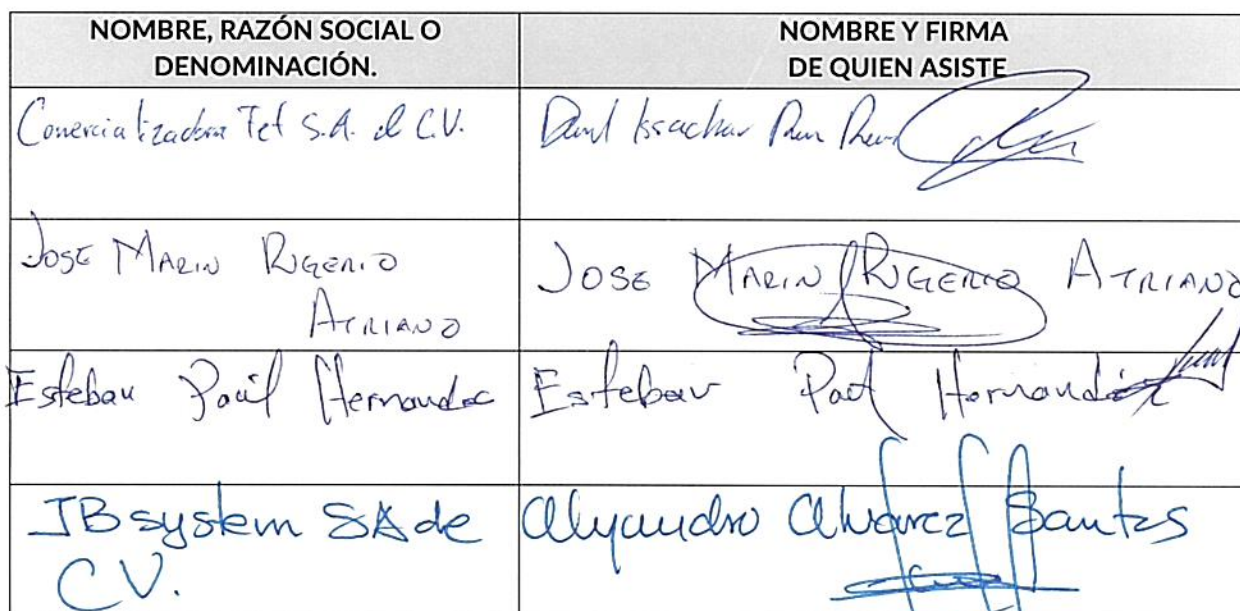 NOMBRE, RAZÓN SOCIAL O
DENOMINACIÓN.
NOMBRE Y FIRMA
DE QUIEN ASISTE
Comercializadora Tef S.A. d C.V.
Issachar
JOSE MARIN RUGERIO
ATRIANO
JOSE MARIN RUGERIO ATRIANO
Esteban Paúl Hernandez
Esteban Paúl Hernández
JB system SA de
C.V.
Alejandro Alvarez Santos